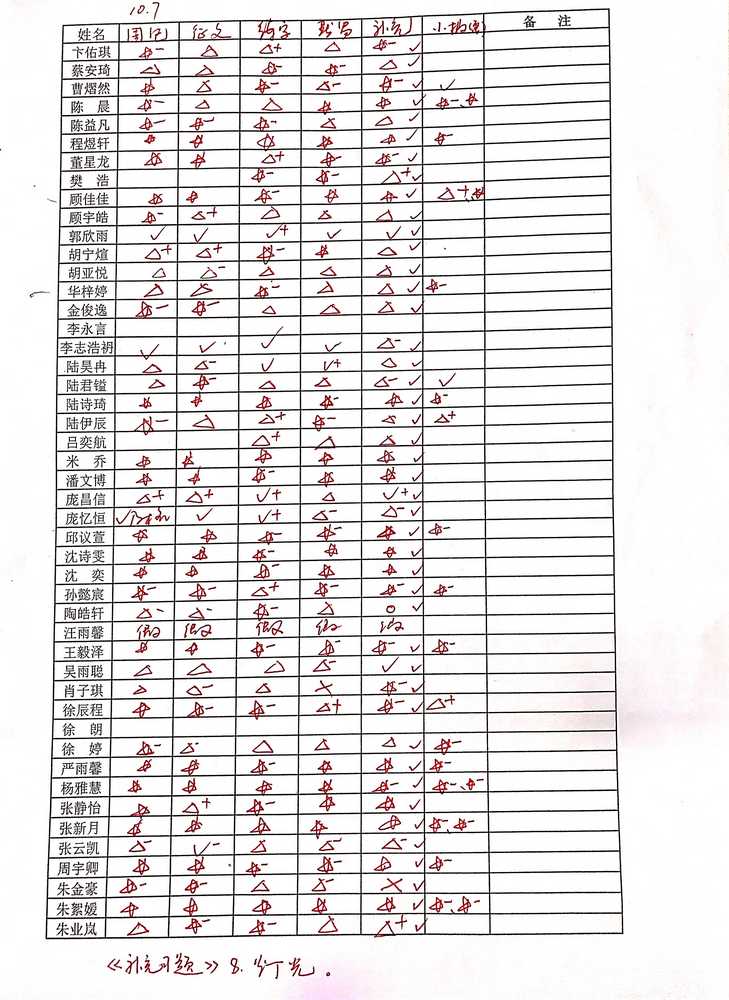 10.7
姓名 周记 征文 练字 默写 补充 备注
卞佑琪 ☆- △ △+ △ ☆- ✓
蔡安琦 △ △ ☆- ☆- △ ✓
曹熠然 ☆ △ ☆- △- ☆- ✓ ✓
陈晨 ☆- △ △ ☆ ☆ ✓ ☆-、☆
陈益凡 ☆- ☆- ☆- △ △ ✓
程煜轩 ☆ ☆ ☆ ☆ ☆ ✓ ☆-
董星龙 ☆ ☆ △+ ☆- ☆- ✓
樊浩 ☆- ☆- △+ ✓
顾佳佳 ☆ ☆ ☆- ☆ ☆ ✓ △+、☆
顾宇皓 ☆- △+ △ △ △ ✓
郭欣雨 ✓ ✓ ✓+ ✓ ✓ ✓
胡宁煊 △+ △+ ☆- ☆ △ ✓
胡亚悦 △ △- △ △ △ ✓
华梓婷 △ △ ☆- △ △ ✓ ☆-
金俊逸 ☆- ☆- △ △ △ ✓
李永言 ✓
李志浩礽 ✓ ✓ ✓ ✓ △- ✓
陆昊冉 △ △- ✓ ✓+ △ ✓
陆君镒 △ ☆- △ △ △- ✓ ✓
陆诗琦 ☆ ☆ ☆ ☆- ☆ ✓ ☆-
陆伊辰 ☆- △ △+ ☆- △ ✓ △+
吕奕航 △+ △ △ ✓
米乔 ☆ ☆ ☆ ☆ ☆ ✓
潘文博 ☆ ☆ ☆- ☆ ☆ ✓
庞昌信 △+ △+ ✓+ △ ✓+ ✓
庞忆恒 ✓ ✓ ✓+ △- △- ✓
邱议萱 ☆ ☆ ☆- ☆- ☆- ✓ ☆-
沈诗雯 ☆ ☆ ☆- ☆ ☆ ✓
沈奕 ☆ ☆ ☆- ☆ ☆ ✓
孙懿宸 ☆- ☆- △+ ☆- ☆- ✓ ☆-
陶皓轩 △- △- ☆- △ ○ ✓
汪雨馨 假 假 假 假 假
王毅泽 ☆ ☆ ☆- ☆- ☆- ✓ ☆-
吴雨聪 △ △ △ △- ✓ ✓
肖子琪 △ △- △ × ☆- ✓
徐辰程 ☆ ☆- ☆- △+ ☆- ✓ △+
徐朗
徐婷 ☆- △- △ △ △ ✓ ☆-
严雨馨 ☆ ☆ ☆- ☆ ☆ ✓ ☆-
杨雅慧 ☆ ☆ ☆ ☆ ☆- ✓ ☆-、☆-
张静怡 ☆ △+ ☆- ☆ ☆ ✓
张新月 ☆ ☆ ☆ ☆ ☆ ✓ ☆-、☆-
张云凯 △- ✓- △ △- △- ✓
周宇卿 ☆ ☆ ☆- ☆- ☆ ✓ ☆-
朱金豪 ☆- ☆- △ △- × ✓
朱絮媛 ☆ ☆ ☆ ☆ ☆ ✓ ☆-、☆-
朱业岚 △ ☆- ☆- △ △+ ✓
《补充习题》8.灯光。